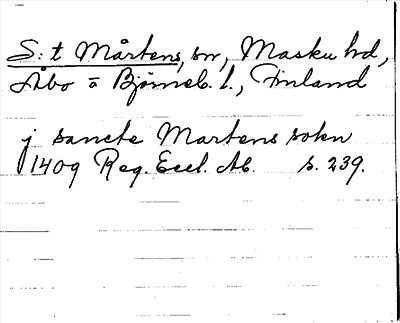 S:t Mårtens, sn, Masku hd,
Åbo o Björneb. l., Finland
j sancte Martens sokn
1409 Reg. Eccl. Ab. s. 239.